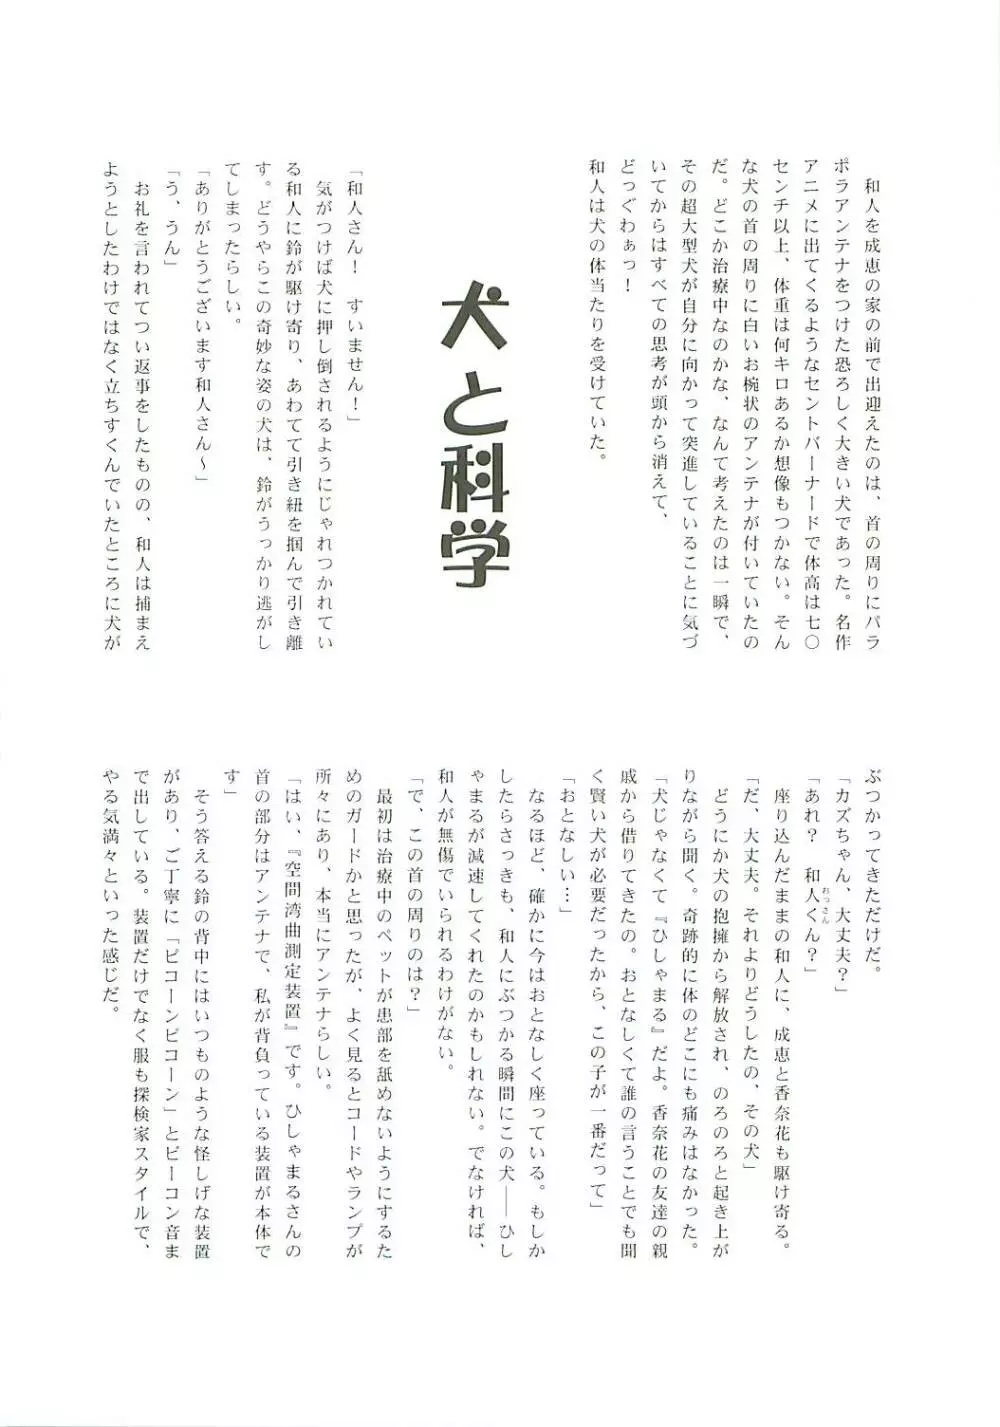 和人を成恵の家の前で出迎えたのは、首の周りにパラ
ボラアンテナをつけた恐ろしく大きい犬であった。名作
アニメに出てくるようなセントバーナードで体高は七〇
センチ以上、体重は何キロあるか想像もつかない。そん
な犬の首の周りに白いお椀状のアンテナが付いていたの
だ。どこか治療中なのかな、なんて考えたのは一瞬で、
その超大型犬が自分に向かって突進していることに気づ
いてからはすべての思考が頭から消えて、
どっぐわぁっ！
和人は犬の体当たりを受けていた。
犬と科学
「和人さん！　すいません！」
　気がつけば犬に押し倒されるようにじゃれつかれてい
る和人に鈴が駆け寄り、あわてて引き紐を掴んで引き離
す。どうやらこの奇妙な姿の犬は、鈴がうっかり逃がし
てしまったらしい。
「ありがとうございます和人さん〜」
「う、うん」
　お礼を言われてつい返事をしたものの、和人は捕まえ
ようとしたわけではなく立ちすくんでいたところに犬が
ぶつかってきただけだ。
「カズちゃん、大丈夫？」
「あれ？　和人くん？」
おっさん
　座り込んだままの和人に、成恵と香奈花も駆け寄る。
「だ、大丈夫。それよりどうしたの、その犬」
　どうにか犬の抱擁から解放され、のろのろと起き上が
りながら聞く。奇跡的に体のどこにも痛みはなかった。
「犬じゃなくて『ひしゃまる』だよ。香奈花の友達の親
戚から借りてきたの。おとなしくて誰の言うことでも聞
く賢い犬が必要だったから、この子が一番だって」
「おとなしい…」
　なるほど、確かに今はおとなしく座っている。もしか
したらさっきも、和人にぶつかる瞬間にこの犬――ひし
ゃまるが減速してくれたのかもしれない。でなければ、
和人が無傷でいられるわけがない。
「で、この首の周りのは？」
　最初は治療中のペットが患部を舐めないようにするた
めのガードかと思ったが、よく見るとコードやランプが
所々にあり、本当にアンテナらしい。
「はい、『空間湾曲測定装置』です。ひしゃまるさんの
首の部分はアンテナで、私が背負っている装置が本体で
す」
　そう答える鈴の背中にはいつものような怪しげな装置
があり、ご丁寧に「ピコーンピコーン」とビーコン音ま
で出している。装置だけでなく服も探検家スタイルで、
やる気満々といった感じだ。